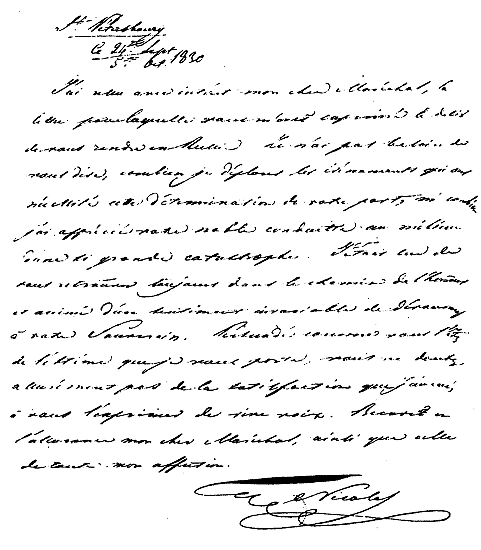 St. Pétersbourg
Ce 24 Sept
5 Oct. 1830
J'ai reçu avec intérêt mon cher Maréchal, la
lettre par laquelle vous m'avez exprimé le désir
de vous rendre en Russie. Je n'ai pas besoin de
vous dire, combien je déplore les événements qui ont
nécessité cette détermination de votre part, ni combien
j'ai apprécié votre noble conduite au milieu
d'une si grande catastrophe. J'étais sûr de
vous retrouver toujours dans le chemin de l'honneur
et animé d'un sentiment invariable de
à votre Souverain. Persuadé comme vous l'êtes
de l'estime que je vous porte, vous ne doutez
assurément pas de la satisfaction que j'aurai
à vous l'exprimer de vive voix. Recevez en
l'assurance mon cher Maréchal, ainsi que celle
de toute mon affection.
Nicolas